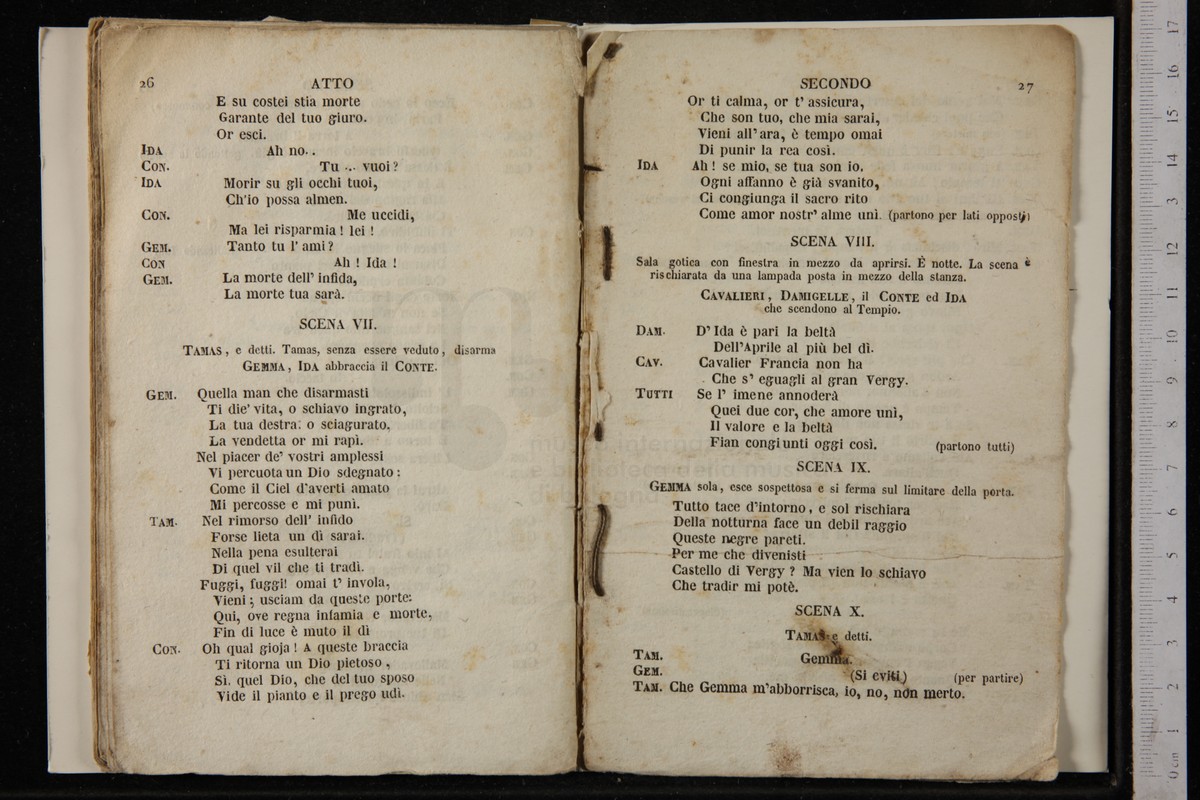 26 ATTO
E su costei stia morte
Garante del tuo giuro.
Or esci.
IDA Ah no..
CON. Tu ... vuoi?
IDA Morir su gli occhi tuoi,
Ch'io possa almen.
CON. Me uccidi,
Ma lei risparmia! lei!
GEM. Tanto tu l'ami?
CON Ah! Ida!
GEM. La morte dell' infida,
La morte tua sarà.
SCENA VII.
TAMAS, e detti. Tamas, senza essere veduto, disarma
GEMMA, IDA abbraccia il CONTE.
GEM. Quella man che disarmasti
Ti die' vita, o schiavo ingrato,
La tua destra: o sciagurato,
La vendetta or mi rapì.
Nel piacer de' vostri amplessi
Vi percuota un Dio sdegnato:
Come il Ciel d'averti amato
Mi percosse e mi punì.
TAM. Nel rimorso dell' infido
Forse lieta un dì sarai.
Nella pena esulterai
Di quel vil che ti tradì.
Fuggi, fuggi! omai t' invola,
Vieni; usciam da queste porte:
Qui, ove regna infamia e morte,
Fin di luce è muto il dì
CON. Oh qual gioja! A queste braccia
Ti ritorna un Dio pietoso,
Sì. quel Dio, che del tuo sposo
Vide il pianto e il prego udì.
SECONDO 27
Or ti calma, or t' assicura,
Che son tuo, che mia sarai,
Vieni all'ara, è tempo omai
Di punir la rea così.
IDA Ah! se mio, se tua son io.
Ogni affanno è già svanito,
Ci congiunga il sacro rito
Come amor nostr' alme unì. (partono per lati opposti)
SCENA VIII.
Sala gotica con finestra in mezzo da aprirsi. È notte. La scena è
rischiarata da una lampada posta in mezzo della stanza.
CAVALIERI, DAMIGELLE, il CONTE ed IDA
che scendono al Tempio.
DAM. D'Ida è pari la beltà
Dell'Aprile al più bel dì.
CAV. Cavalier Francia non ha
Che s' eguagli al gran Vergy.
TUTTI Se l' imene annoderà
Quei due cor, che amore unì,
Il valore e la beltà
Fian congiunti oggi così. (partono tutti)
SCENA IX.
GEMMA sola, esce sospettosa e si ferma sul limitare della porta.
Tutto tace d'intorno, e sol rischiara
Della notturna face un debil raggio
Queste negre pareti.
Per me che divenisti
Castello di Vergy? Ma vien lo schiavo
Che tradir mi potè.
SCENA X.
TAMAS e detti.
TAM. Gemma.
GEM. (Si eviti) (per partire)
TAM. Che Gemma m'abborrisca, io, no, non merto.